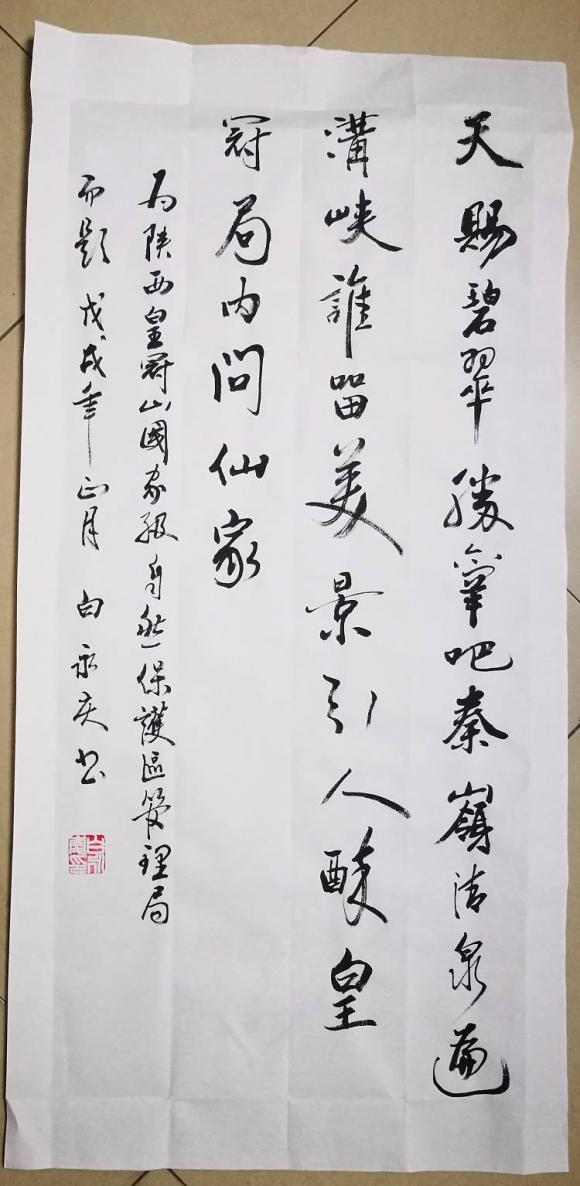 天賜碧翠勝氧吧秦嶺清泉遍
溝峽誰留美景引人醉皇
冠局内問仙家
为陕西皇冠山國家级自然保護區管理局
而題 戊戌年正月 白永庆书